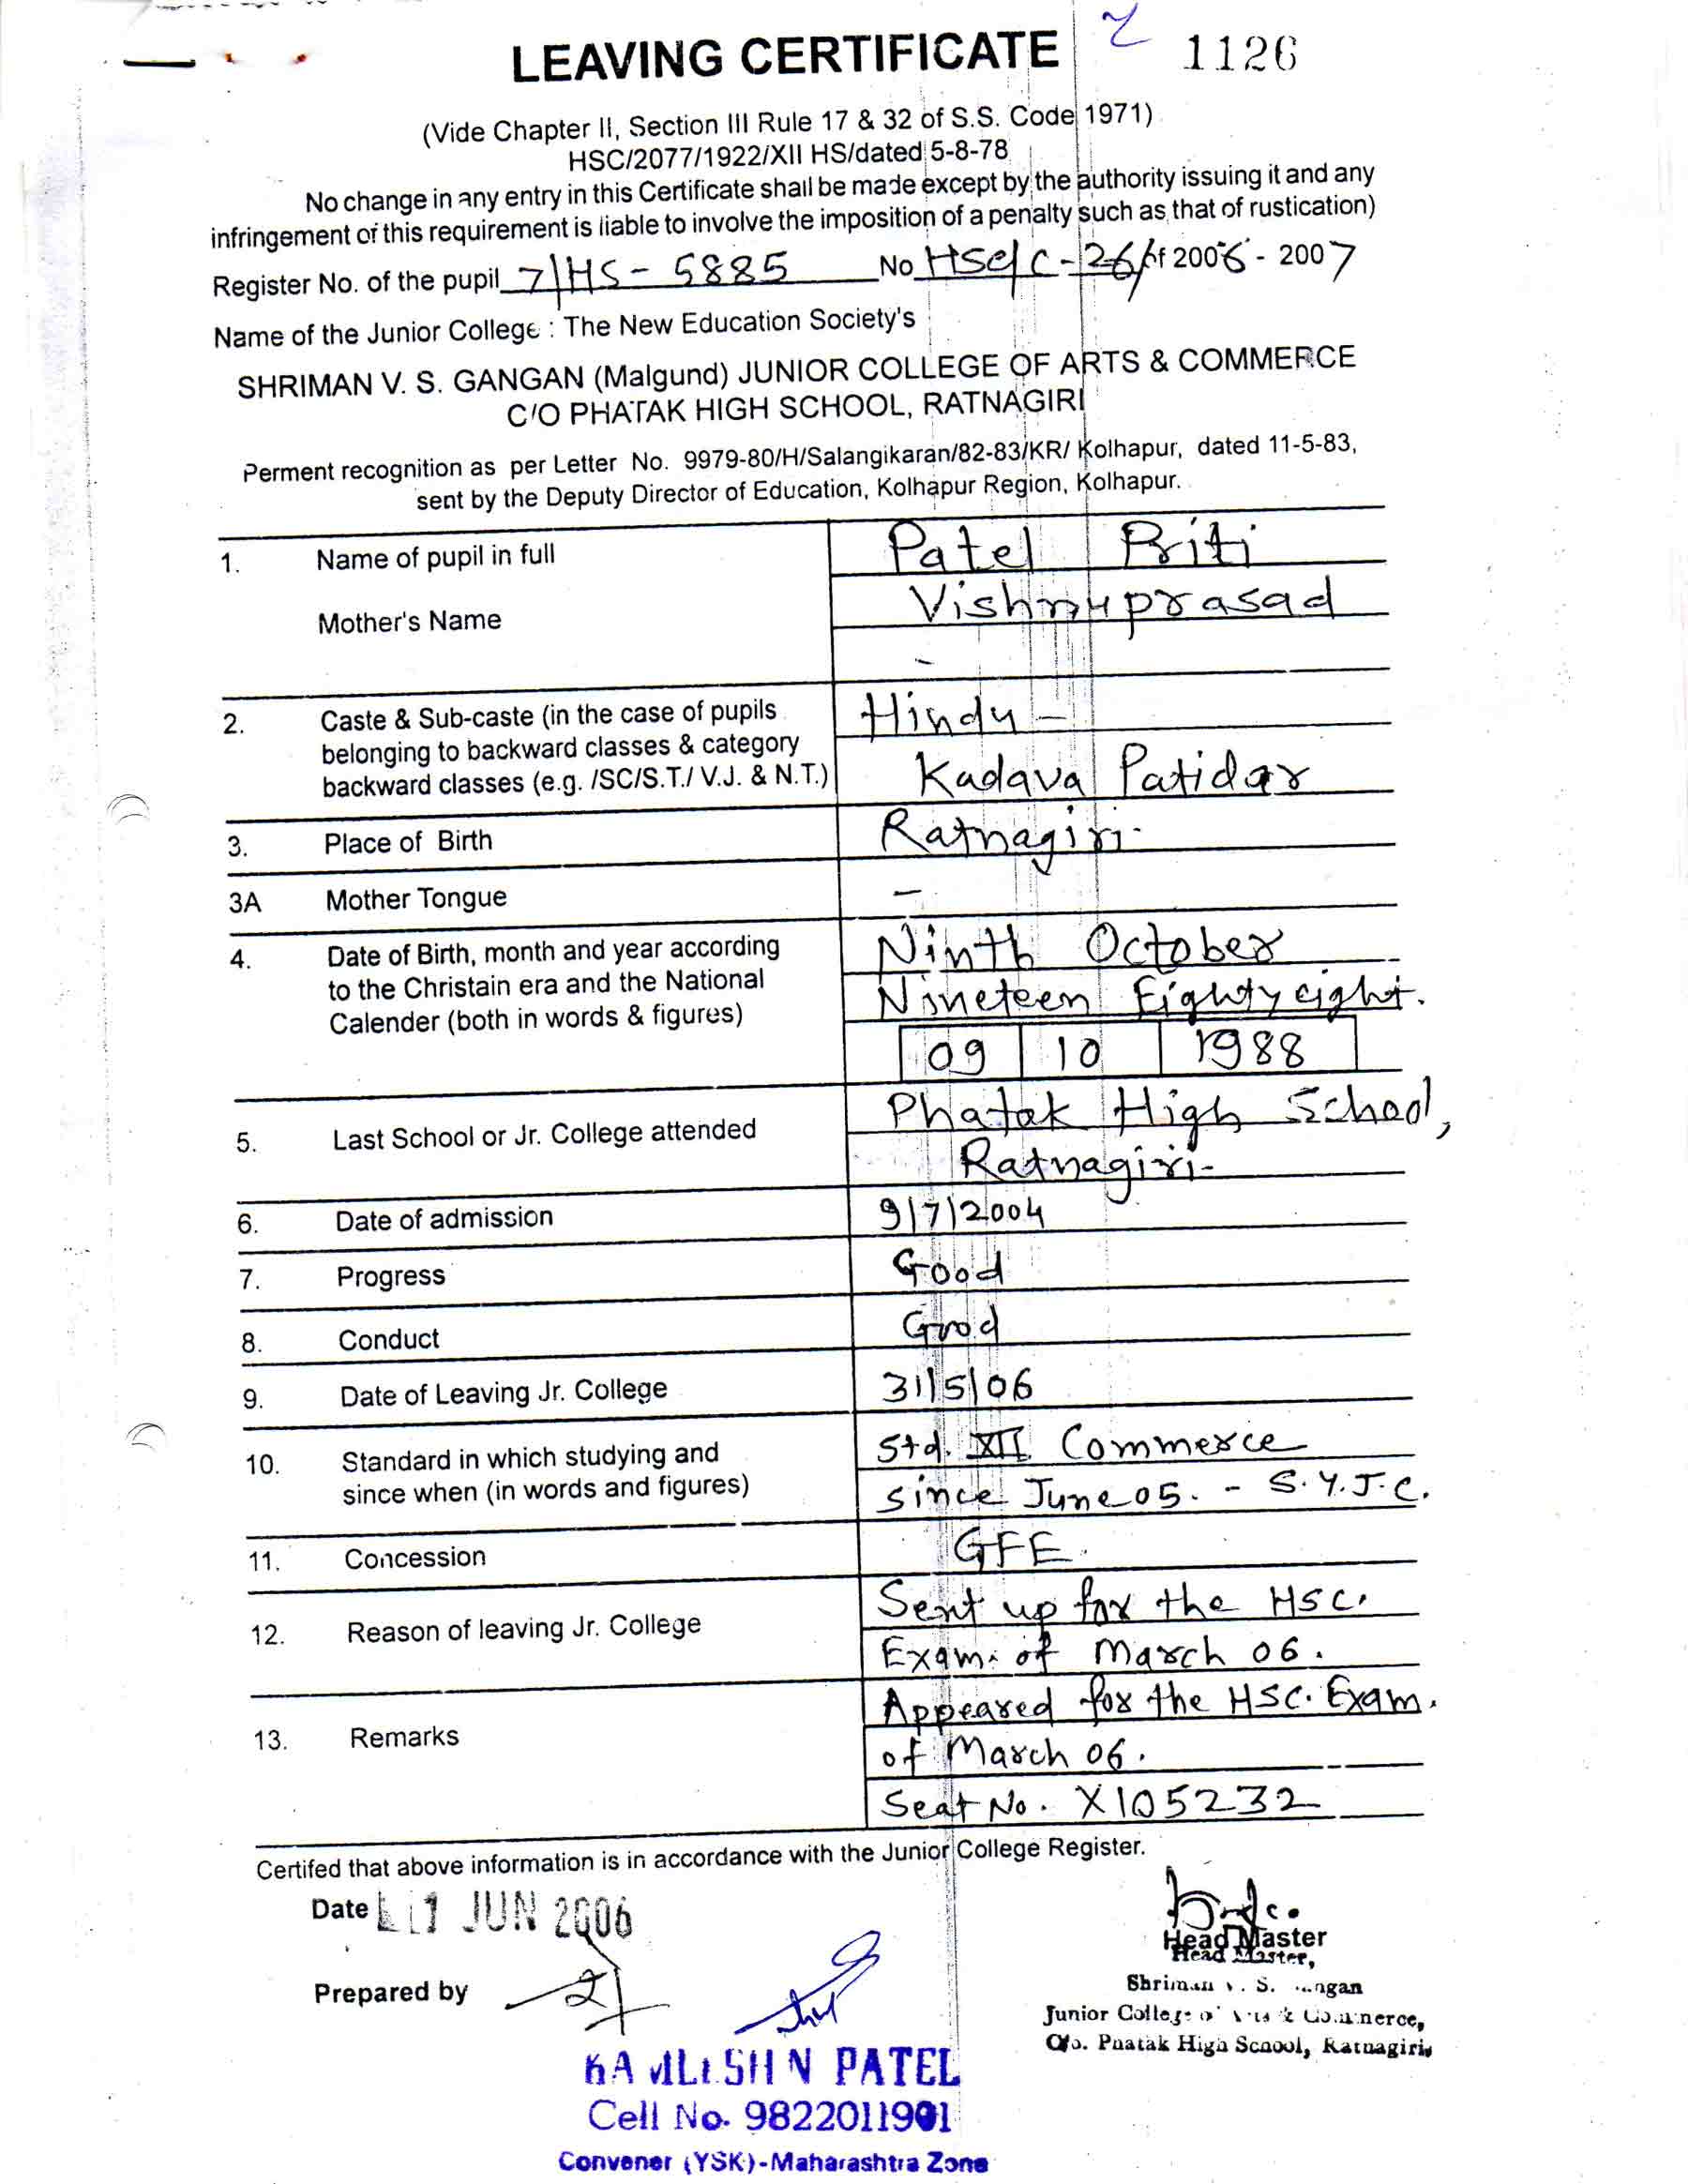 LEAVING CERTIFICATE 1126
(Vide Chapter II, Section III Rule 17 & 32 of S.S. Code 1971)
HSC/2077/1922/XII HS/dated 5-8-78
No change in any entry in this Certificate shall be made except by the authority issuing it and any
infringement of this requirement is liable to involve the imposition of a penalty such as that of rustication)
Register No. of the pupil 7/HS - 5885 No HSC/C-26/of 2006 - 2007
Name of the Junior College : The New Education Society's
SHRIMAN V. S. GANGAN (Malgund) JUNIOR COLLEGE OF ARTS & COMMERCE
C/O PHATAK HIGH SCHOOL, RATNAGIRI
Perment recognition as per Letter No. 9979-80/H/Salangikaran/82-83/KR/ Kolhapur, dated 11-5-83,
sent by the Deputy Director of Education, Kolhapur Region, Kolhapur.
1. Name of pupil in full Patel Priti
Vishnuprasad
Mother's Name -
2. Caste & Sub-caste (in the case of pupils Hindu -
belonging to backward classes & category
backward classes (e.g. /SC/S.T./ V.J. & N.T.) Kadava Patidar
3. Place of Birth Ratnagiri-
3A Mother Tongue -
4. Date of Birth, month and year according Ninth October
to the Christain era and the National Nineteen Eighty eight.
Calender (both in words & figures) 09 10 1988
5. Last School or Jr. College attended Phatak High School,
Ratnagiri-
6. Date of admission 9/7/2004
7. Progress Good
8. Conduct Good
9. Date of Leaving Jr. College 31/5/06
10. Standard in which studying and Std. XII Commerce
since when (in words and figures) since June 05. - S.Y.J.C.
11. Concession GFE.
12. Reason of leaving Jr. College Sent up for the HSC.
Exam. of March 06.
13. Remarks Appeared for the HSC. Exam.
of March 06.
Seat No. X105232
Certifed that above information is in accordance with the Junior College Register.
Date 1 JUN 2006
Head Master
Head Master,
Prepared by
Shriman V. S. Gangan
Junior College of Arts & Commerce,
C/o. Phatak High School, Ratnagiri
KAMLESH N PATEL
Cell No. 9822011901
Convener (YSK)-Maharashtra Zone